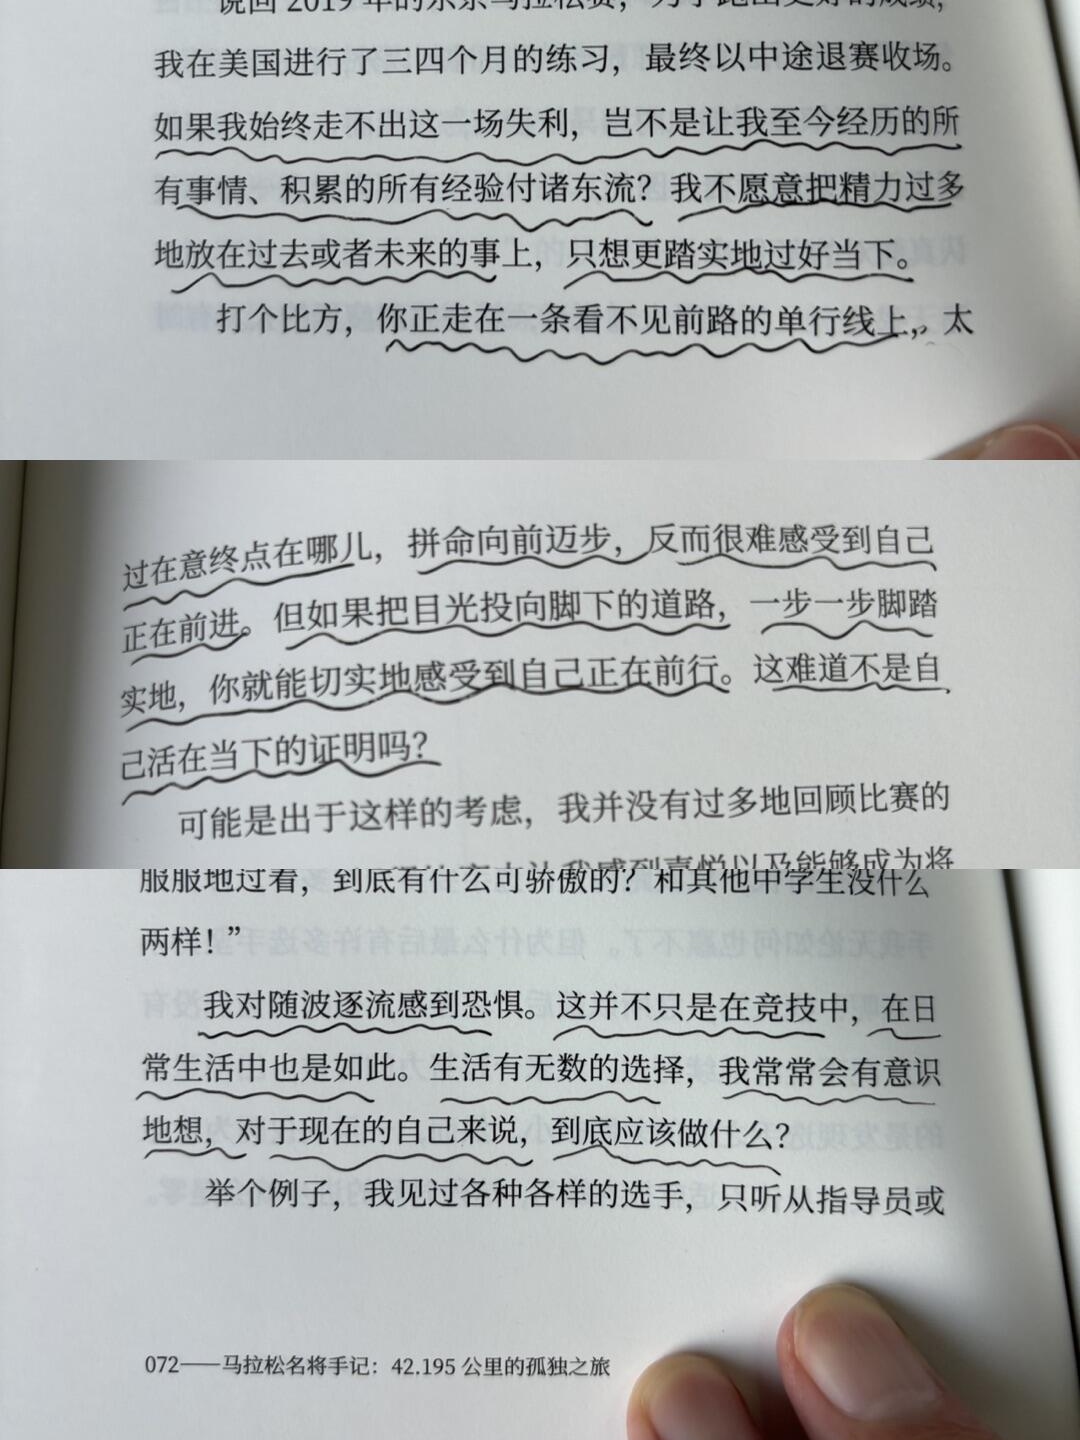 说回 2019 年的东京马拉松赛，为了跑出更好的成绩，
我在美国进行了三四个月的练习，最终以中途退赛收场。
如果我始终走不出这一场失利，岂不是让我至今经历的所
有事情、积累的所有经验付诸东流？我不愿意把精力过多
地放在过去或者未来的事上，只想更踏实地过好当下。
打个比方，你正走在一条看不见前路的单行线上，太
过在意终点在哪儿，拼命向前迈步，反而很难感受到自己
正在前进。但如果把目光投向脚下的道路，一步一步脚踏
实地，你就能切实地感受到自己正在前行。这难道不是自
己活在当下的证明吗？
可能是出于这样的考虑，我并没有过多地回顾比赛的
我感到喜悦以及能够成为将
服服地过着，到底有什么可骄傲的？和其他中学生没什么
两样！”
我对随波逐流感到恐惧。这并不只是在竞技中，在日
常生活中也是如此。生活有无数的选择，我常常会有意识
地想，对于现在的自己来说，到底应该做什么？
举个例子，我见过各种各样的选手，只听从指导员或
072——马拉松名将手记：42.195 公里的孤独之旅